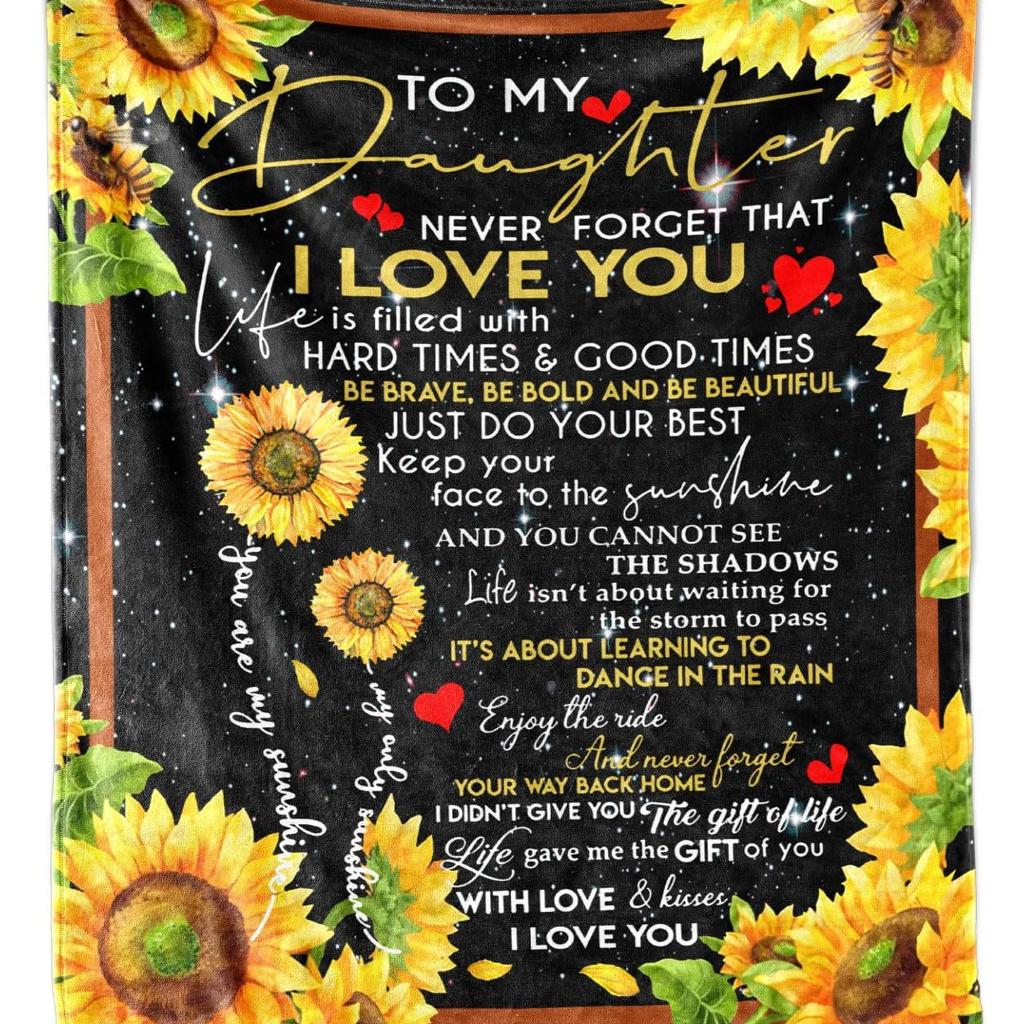 TO MY
Daughter
NEVER FORGET THAT
I LOVE YOU
Life is filled with
HARD TIMES & GOOD TIMES
BE BRAVE, BE BOLD AND BE BEAUTIFUL
JUST DO YOUR BEST
Keep your
face to the sunshine
AND YOU CANNOT SEE
THE SHADOWS
Life isn't about waiting for
the storm to pass
IT'S ABOUT LEARNING TO
DANCE IN THE RAIN
Enjoy the ride
And never forget
YOUR WAY BACK HOME
I DIDN'T GIVE YOU The gift of life
Life gave me the GIFT of you
WITH LOVE & kisses
I LOVE YOU
you are my sunshine
my only sunshine